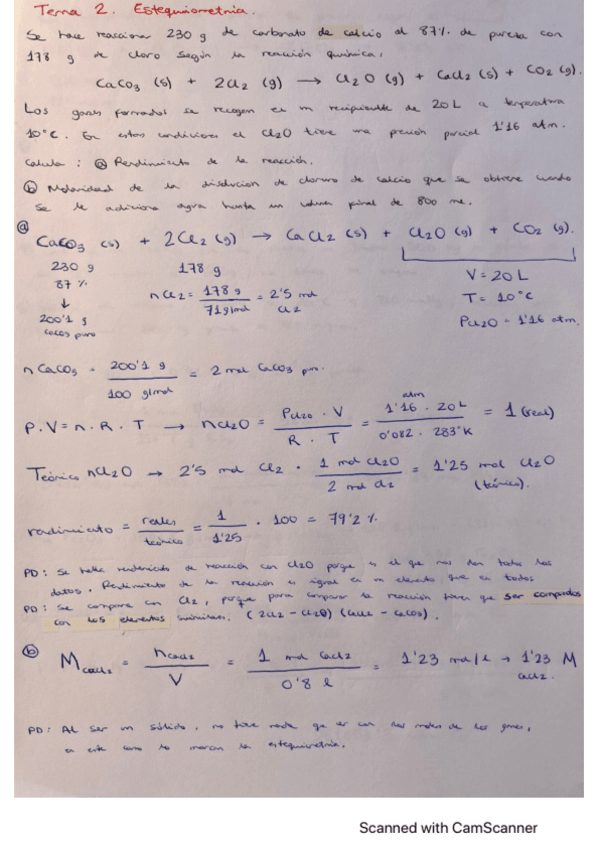 Tema 2. Estequiometria.
Se hace reaccionar 230 g de carbonato de calcio al 87% de pureza con
178 g de cloro según la reacción química:
CaCO3 (s) + 2Cl2 (g) → Cl2O (g) + CaCl2 (s) + CO2 (g).
Los gases formados se recogen en un recipiente de 20 L a temperatura
10°C. En estas condiciones el Cl2O tiene una presión parcial 1'16 atm.
Calcula: ⓐ Rendimiento de la reacción.
ⓑ Molaridad de la disolución de cloruro de calcio que se obtiene cuando
se le adiciona agua hasta un volumen final de 800 ml.
ⓐ
CaCO3 (s) + 2Cl2 (g) → CaCl2 (s) + Cl2O (g) + CO2 (g).
230 g 178 g V = 20 L
87 % n Cl2 = 178 g / 71 g/mol = 2'5 mol Cl2 T = 10°C
↓ PCl2O = 1'16 atm.
200'1 g
CaCO3 puro
n CaCO3 = 200'1 g / 100 g/mol = 2 mol CaCO3 puro.
P.V = n.R.T → nCl2O = PCl2O . V / R . T = 1'16 atm . 20 L / 0'082 . 283°K = 1 (real)
Teórico nCl2O → 2'5 mol Cl2 . 1 mol Cl2O / 2 mol Cl2 = 1'25 mol Cl2O (teórico).
rendimiento = reales / teórico = 1 / 1'25 . 100 = 79'2 %.
PD: Se halla rendimiento de reacción con Cl2O porque es el que nos dan todos los
datos. Rendimiento de la reacción es igual en un elemento que en todos
PD: Se compara con Cl2, porque para comparar la reacción tienen que ser comparados
con los elementos similares. (2Cl2 - Cl2O) (CaCl2 - CaCO3).
ⓑ
MCaCl2 = nCaCl2 / V = 1 mol CaCl2 / 0'8 l = 1'23 mol/l → 1'23 M CaCl2.
PD: Al ser un sólido, no tiene nada que ver con los moles de los gases,
en este caso lo marcan la estequiometría.
Scanned with CamScanner